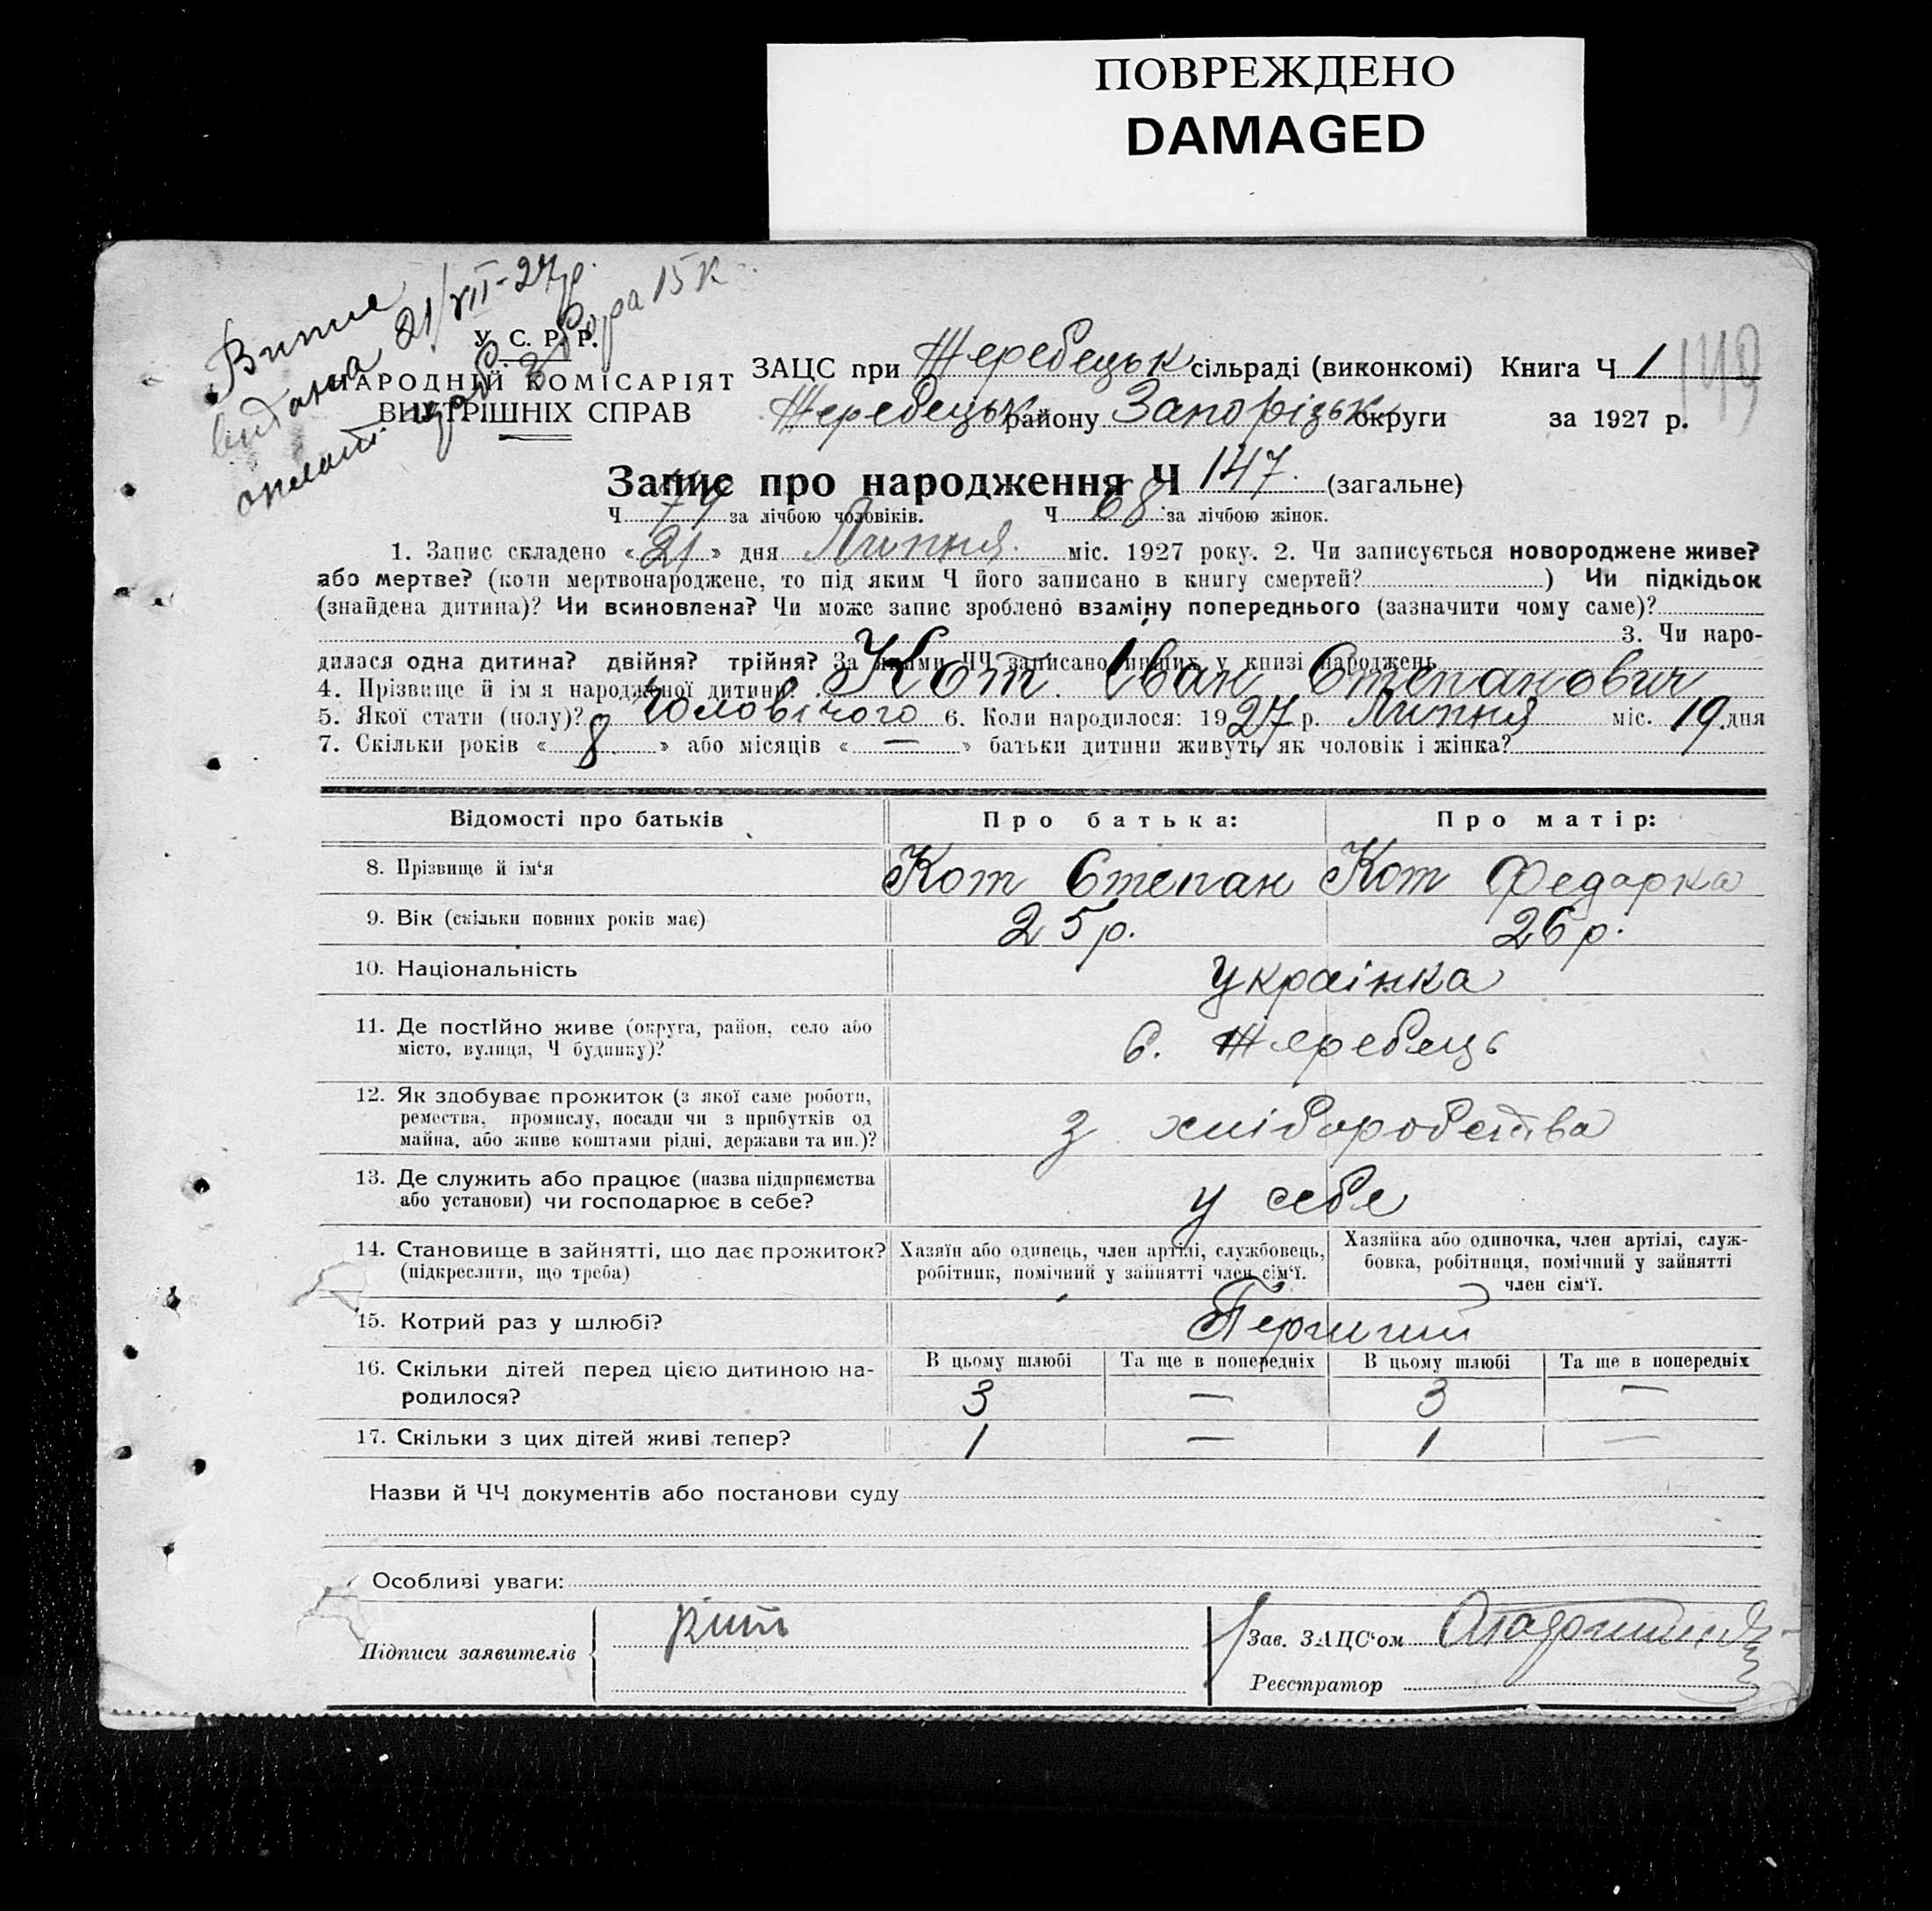 ПОВРЕЖДЕНО
DAMAGED
видана 21/VII-27р.
15 к
У. С. Р. Р.
НАРОДНІЙ КОМІСАРІЯТ
ВНУТРІШНІХ СПРАВ
ЗАЦС при Жеребецьк сільраді (виконкомі) Книга Ч 1
149
Жеребецьк району Запорізьк округи за 1927 р.
Запис про народження Ч 147. (загальне)
Ч 79 за лічбою чоловіків. Ч 68 за лічбою жінок.
1. Запис складено «21» дня Липня. міс. 1927 року. 2. Чи записується новороджене живе?
або мертве? (коли мертвонароджене, то під яким Ч його записано в книгу смертей? ) Чи підкідьок
(знайдена дитина)? Чи всиновлена? Чи може запис зроблено взаміну попереднього (зазначити чому саме)?
3. Чи наро-
дилася одна дитина? двійня? трійня? За якими ЧЧ записано инших у книзі народжень
4. Прізвище й ім я народженої дитини: Кот Іван Степанович
5. Якої стати (полу)? Чоловічого 6. Коли народилося: 1927 р. Липня міс. 19 дня
7. Скільки років « 8 » або місяців « — » батьки дитини живуть як чоловік і жінка?
Відомості про батьків Про батька: Про матір:
8. Прізвище й ім‘я Кот Степан Кот Федорка
9. Вік (скільки повних років має) 25 р. 26 р.
10. Національність українка
11. Де постІйно живе (округа, район, село або
місто, вулиця, Ч будинку)? с. Жеребець
12. Як здобуває прожиток (з якої саме роботи,
ремества, промислу, посади чи з прибутків од
майна, або живе коштами рідні, держави та ин.)? з хліборобства
13. Де служить або працює (назва підприємства
або установи) чи господарює в себе? у себе
14. Становище в зайнятті, що дає прожиток?
(підкреслити, що треба)
Хазяїн або одинець, член артілі, службовець,
робітник, помічний у зайнятті член сім‘ї.
Хазяйка або одиночка, член артілі, служ-
бовка, робітниця, помічний у зайнятті
член сім‘ї.
15. Котрий раз у шлюбі? Перший
16. Скільки дітей перед цією дитиною на-
родилося?
В цьому шлюбі Та ще в попередніх В цьому шлюбі Та ще в попередніх
3 — 3 —
17. Скільки з цих дітей живі тепер? 1 — 1 —
Назви й ЧЧ документів або постанови суду
Особливі уваги:
Підписи заявителів
Зав. ЗАЦС‘ом
Реєстратор